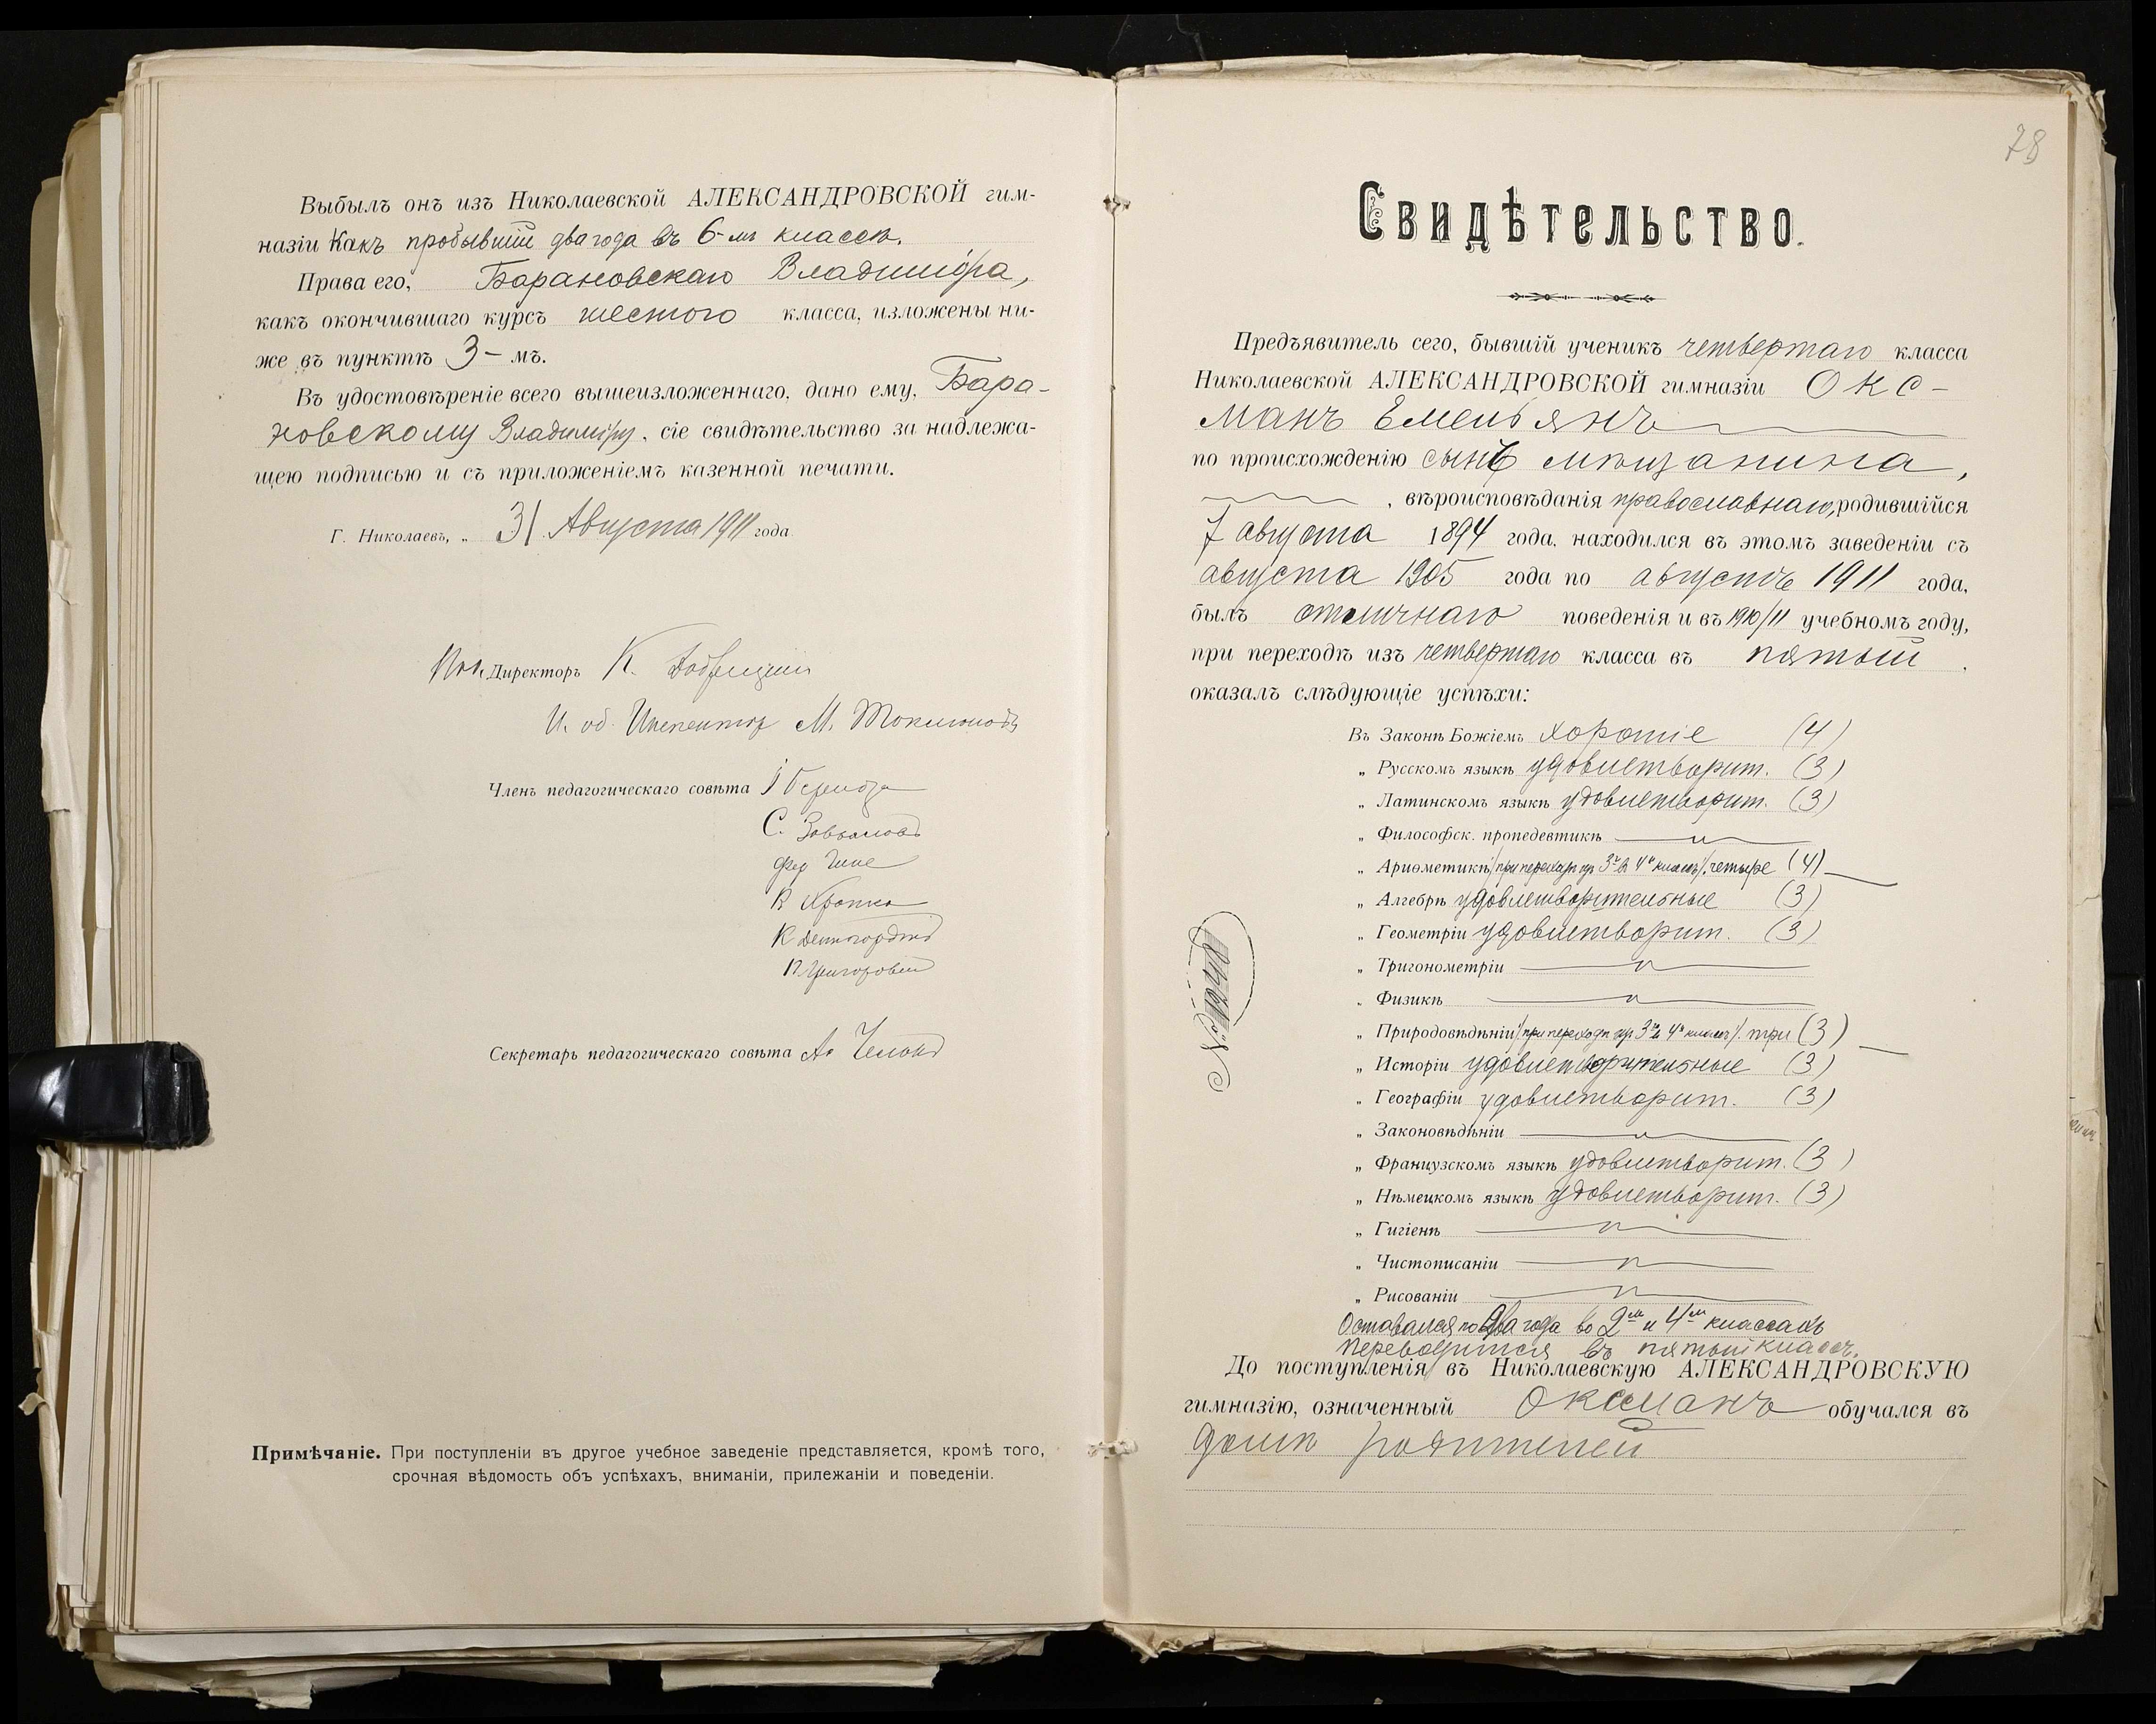 Выбылъ онъ изъ Николаевской АЛЕКСАНДРОВСКОЙ гим-
назіи Какъ пробывшій два года въ 6-мъ классѣ.
Права его, Барановскаго Владиміра,
какъ окончившаго курсъ шестого класса, изложены ни-
же въ пунктѣ 3-мъ.
Въ удостовѣреніе всего вышеизложеннаго, дано ему, Бара-
новскому Владиміру, сіе свидѣтельство за надлежа-
щею подписью и съ приложеніемъ казенной печати.
Г. Николаевъ, „ 31 Августа 1911 года
Директоръ К.
И. об. Инспектор М.
Членъ педагогическаго совѣта
С.
К
П. Григорович
Секретарь педагогическаго совѣта
Примѣчаніе. При поступленіи въ другое учебное заведеніе представляется, кромѣ того,
срочная вѣдомость объ успѣхахъ, вниманіи, прилежаніи и поведеніи.
78
Свидѣтельство.
Предъявитель сего, бывшій ученикъ четвертаго класса
Николаевской АЛЕКСАНДРОВСКОЙ гимназіи Окс-
манъ Емельянъ
по происхожденію сынъ мѣщанина,
, вѣроисповѣданія православнаго, родившійся
7 августа 1894 года, находился въ этомъ заведеніи съ
августа 1905 года по августъ 1911 года,
былъ отличнаго поведенія и въ 1910/11 учебномъ году,
при переходѣ изъ четвертаго класса въ пятый
оказалъ слѣдующіе успѣхи:
Въ Законѣ Божіемъ хорошіе (4)
„ Русскомъ языкѣ удовлетворит. (3)
„ Латинскомъ языкѣ удовлетворит. (3)
„ Философск. пропедевтикѣ
„ Ариѳметикѣ /при переходѣ изъ 3го въ 4й классъ/. четыре (4)
„ Алгебрѣ удовлетворительные (3)
„ Геометріи удовлетворит. (3)
„ Тригонометріи
„ Физикѣ
„ Природовѣдѣніи /при переходѣ изъ 3го въ 4й классъ/. три (3)
„ Исторіи удовлетворительные (3)
„ Географіи удовлетворит. (3)
„ Законовѣдѣніи
„ Французскомъ языкѣ удовлетворит. (3)
„ Нѣмецкомъ языкѣ удовлетворит. (3)
„ Гигіенѣ
„ Чистописаніи
„ Рисованіи
Оставался по два года во 2мъ и 4мъ классахъ
Переводится въ пятый классъ.
До поступленія въ Николаевскую АЛЕКСАНДРОВСКУЮ
гимназію, означенный Оксманъ обучался въ
домѣ родителей